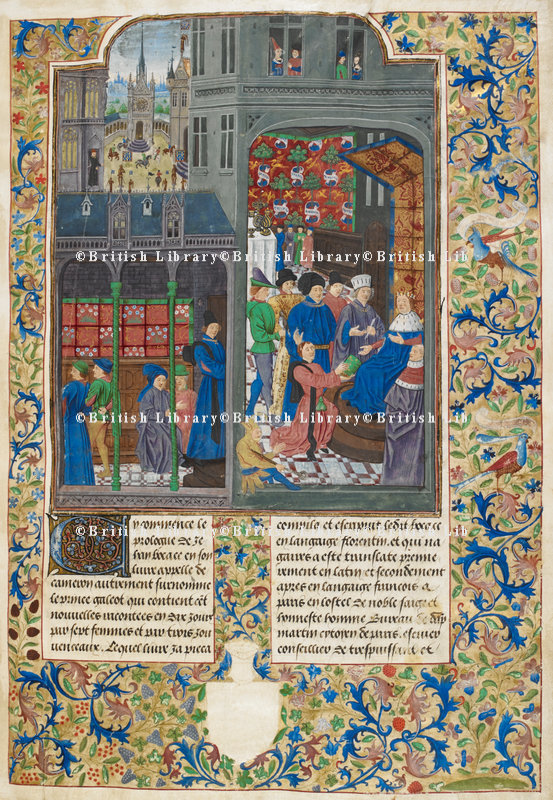 ©British Library©British Library©British Lib
©British Library©British Library©British Lib
©British Library©British Library©British Lib
Cy commence le
prologue de Je
han bocace en son
liure appelle de
cameron autrement surnomme
le prince galeot qui contient cēt
nouuelles racontees en dix Jours
par sept femmes et par trois Jou
uenceaux. Lequel liure Ja pieca
compila et escripst ledit bocace
en langaige florentin. et qui na
gaires a este translate premie
rement en latin et secondement
apres en langaige francois a
paris en lostel de noble saige et
honneste homme Bureau de dan
martin cytoyen de paris. escuier
conseillier de trespuissant et